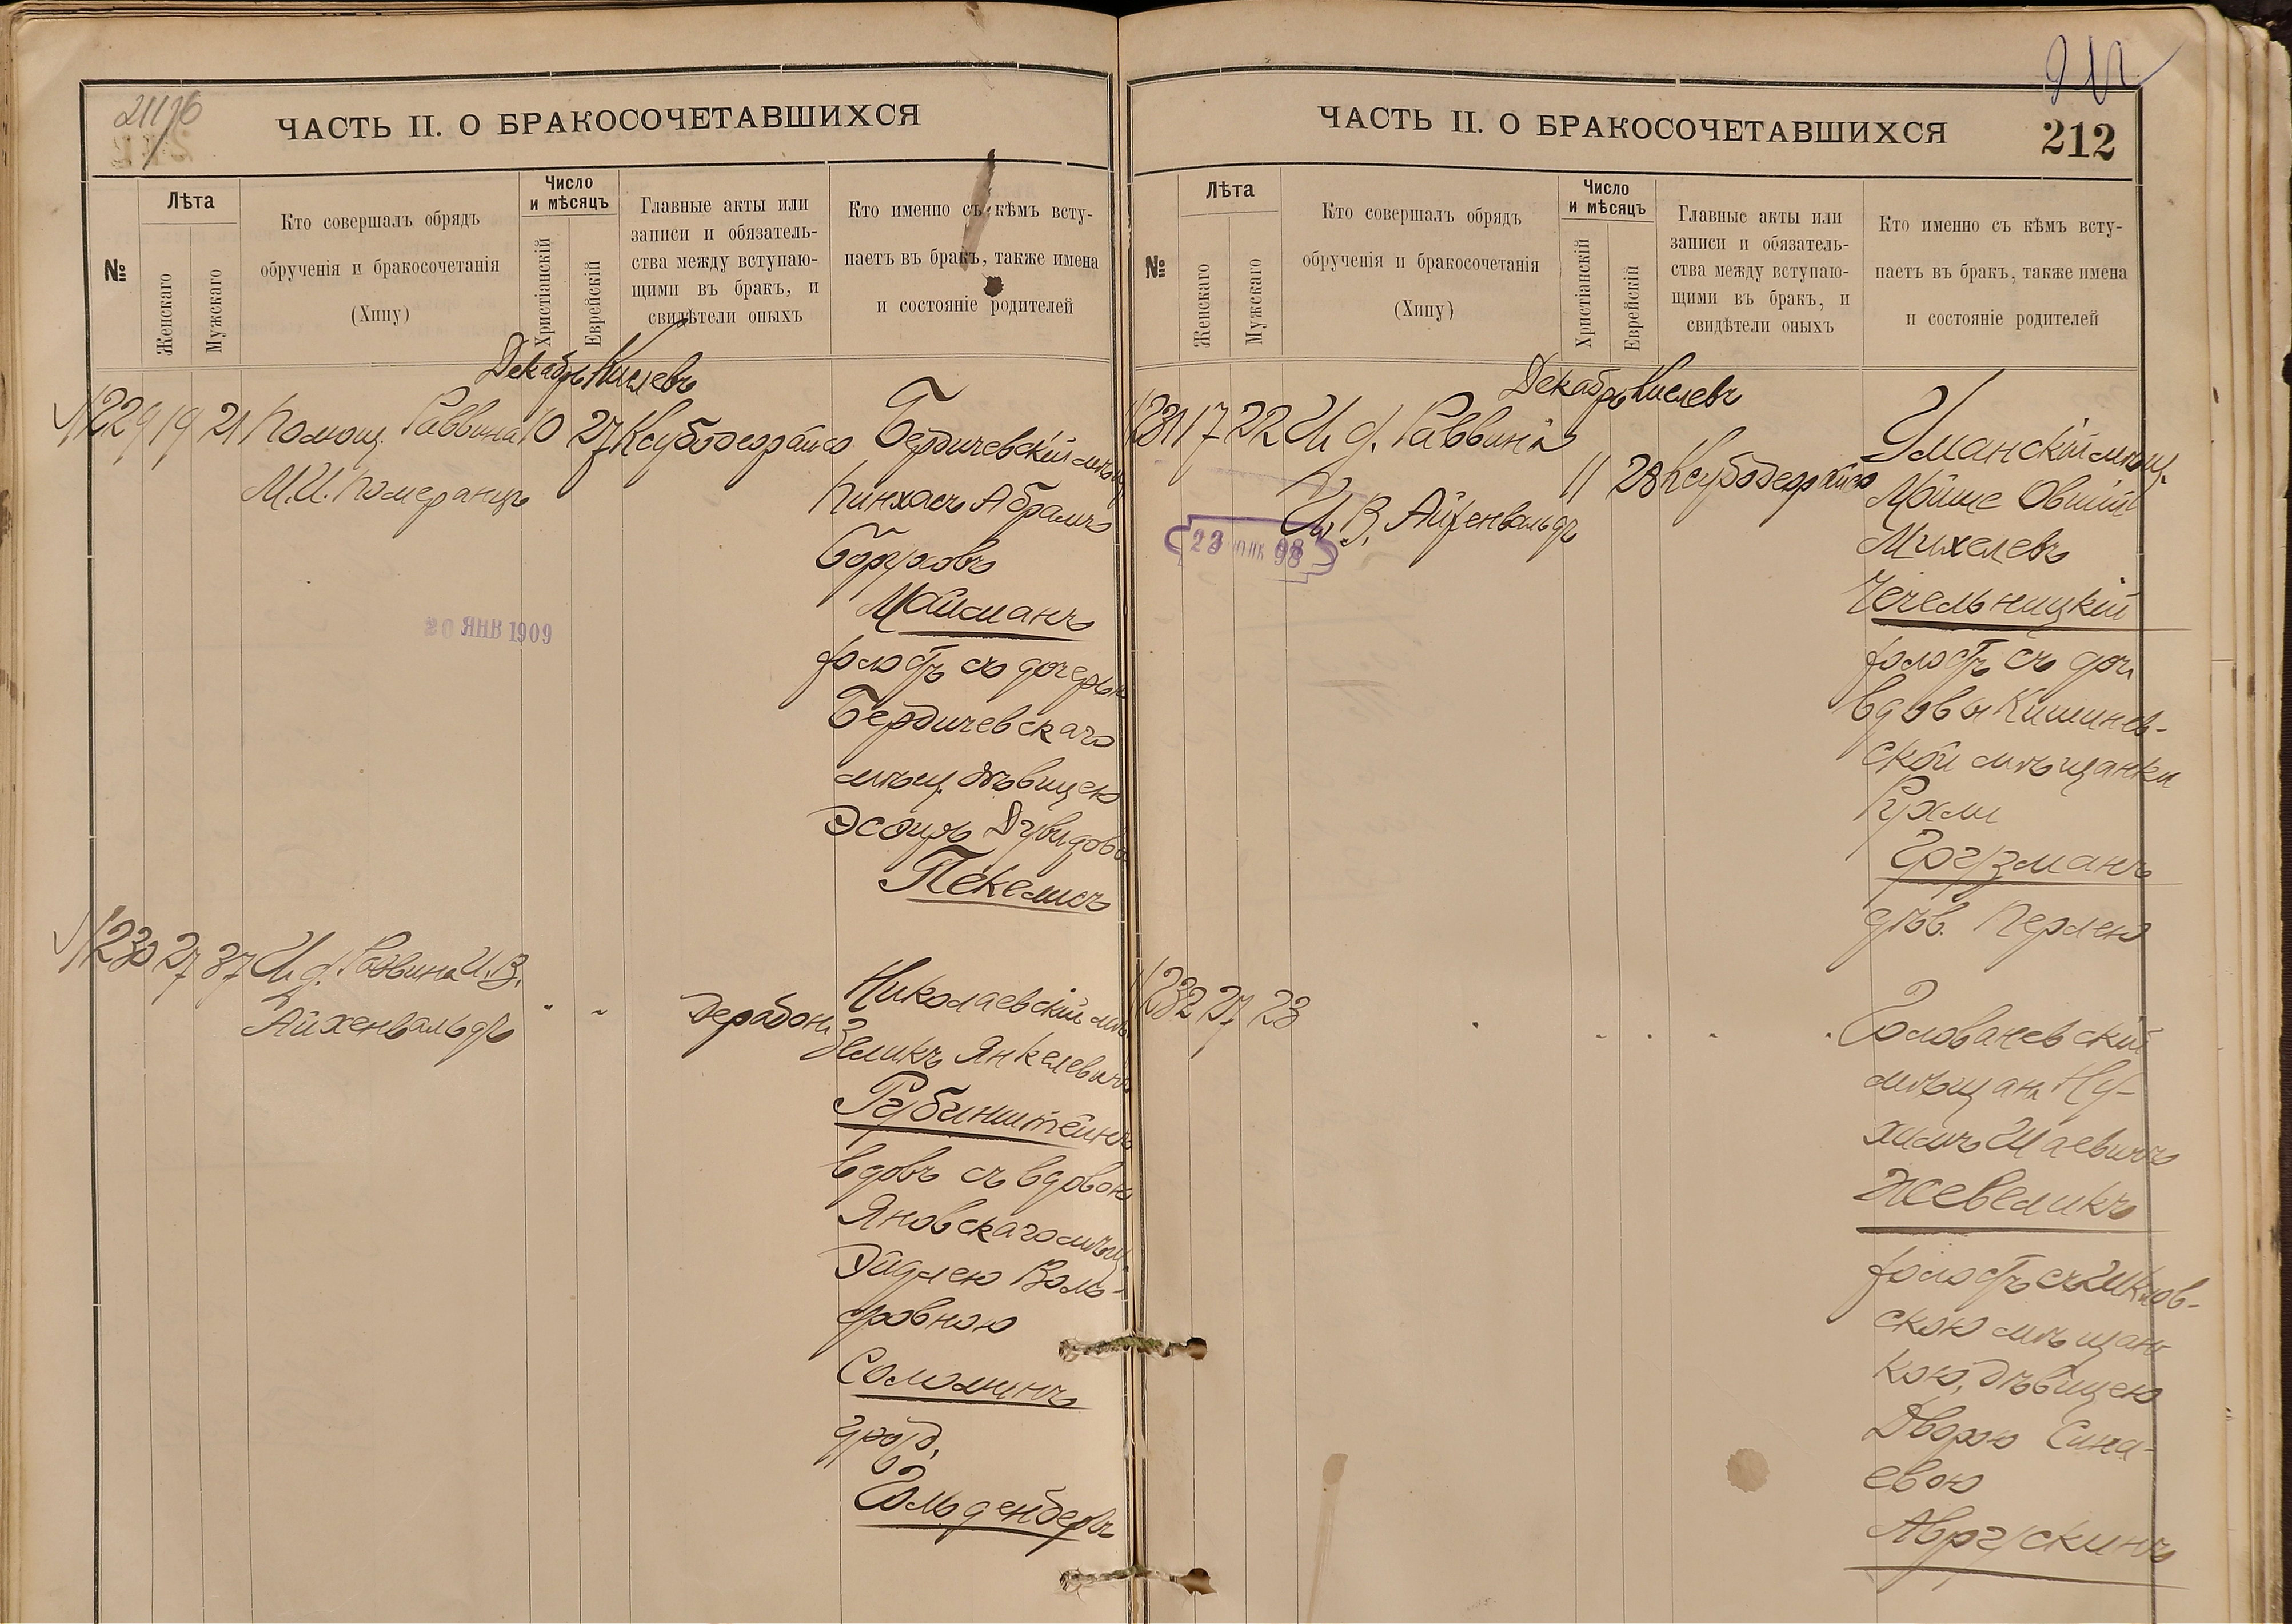 ЧАСТЬ II. О БРАКОСОЧЕТАВШИХСЯ
№
Лѣта
Женскаго
Мужскаго
Кто совершалъ обрядъ
обрученія и бракосочетанія
(Хипу)
Число
и мѣсяцъ
Христіанскій
Еврейскій
Главные акты или
записи и обязатель-
ства между вступаю-
щими въ бракъ, и
свидѣтели оныхъ
Кто именно съ кѣмъ всту-
паетъ въ бракъ, также имена
и состояніе родителей
Декабрь Кислевъ
№229 19 21 Помощ. Раввина 10 27
М.И. Померанцъ
Бердичевскій мѣщ.
Пинхасъ Абрамъ
Борховъ
Майманъ
холостъ съ дочерью
Бердичевскаго
мѣщ. дѣвицею
Эсѳирь Дувидова
Пекелисъ
20 ЯНВ 1909
№230 27 37 И. д. Раввина И.В.
Айхенвальдъ
" "
Николаевскій мѣщ.
Зеликъ Янкелевичъ
Рубинштейнъ
вдовъ съ вдовою
Яновскаго мѣщ.
Эйдлею Воль-
фовною
Соломинъ
урожд.
Гольденбергъ
ЧАСТЬ II. О БРАКОСОЧЕТАВШИХСЯ
212
№
Лѣта
Женскаго
Мужскаго
Кто совершалъ обрядъ
обрученія и бракосочетанія
(Хипу)
Число
и мѣсяцъ
Христіанскій
Еврейскій
Главные акты или
записи и обязатель-
ства между вступаю-
щими въ бракъ, и
свидѣтели оныхъ
Кто именно съ кѣмъ всту-
паетъ въ бракъ, также имена
и состояніе родителей
Декабрь Кислевъ
№231 17 22 И. д. Раввина
И. В. Айхенвальдъ
11 28
Уманскій мѣщ.
Мойше Овший
Михелевъ
Чечельницкій
холостъ съ доч.
вдовы Кишинев-
ской мѣщанки
Рухли
Гаузманъ
дѣв. Перлею
№232 27 23
Голованевскій
мѣщан. Ну-
химъ Шаевичъ
Жевеликъ
холостъ съ Шклов-
скою мѣщан-
кою, дѣвицею
Дворою Сина-
евою
Аврускинъ